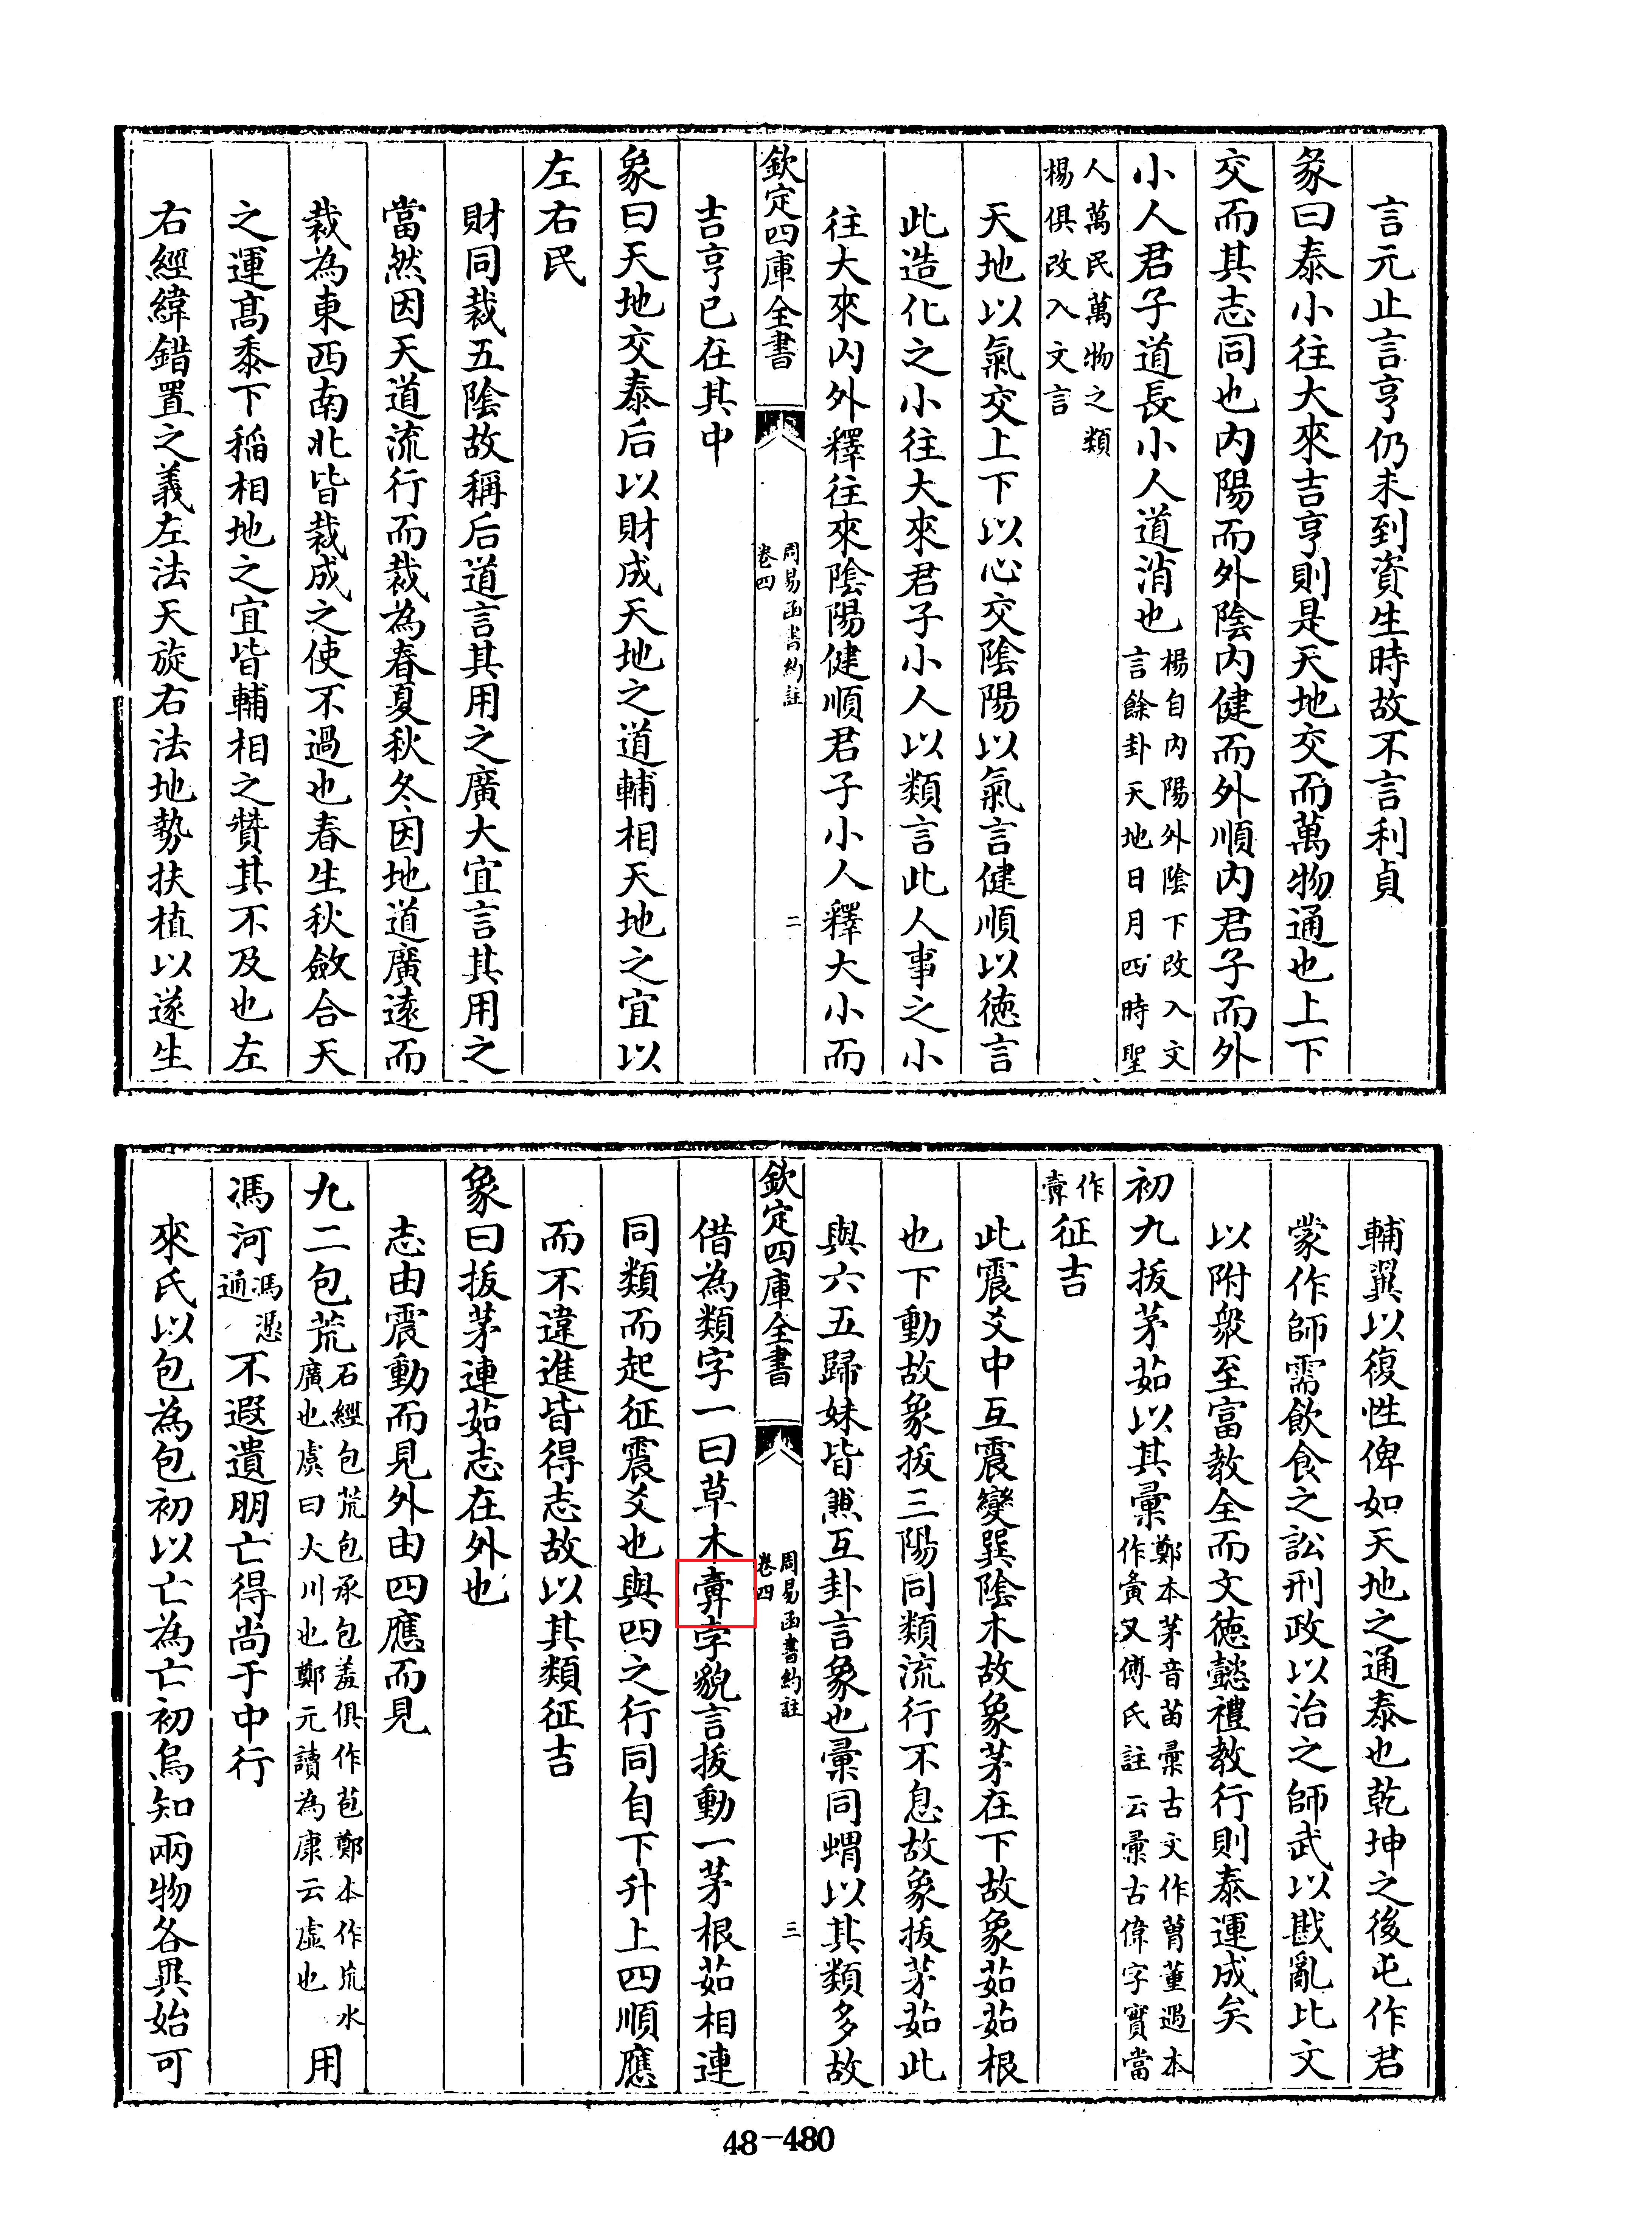 言元止言亨仍未到資生時故不言利貞
彖曰泰小往大來吉亨則是天地交而萬物通也上下
交而其志同也內陽而外陰內健而外順內君子而外
小人君子道長小人道消也楊自內陽外陰下改入文
言餘卦天地日月四時聖
人萬民萬物之類
楊俱改入文言
天地以氣交上下以心交陰陽以氣言健順以德言
此造化之小往大來君子小人以類言此人事之小
往大來內外釋往來陰陽健順君子小人釋大小而
欽定四庫全書
周易函書約註
卷四
二
吉亨已在其中
象曰天地交泰后以財成天地之道輔相天地之宜以
左右民
財同裁五陰故稱后道言其用之廣大宜言其用之
當然因天道流行而裁為春夏秋冬因地道廣遠而
裁為東西南北皆裁成之使不過也春生秋斂合天
之運高黍下稲相地之宜皆輔相之贊其不及也左
右經緯錯置之義左法天旋右法地勢扶植以遂生
輔翼以復性俾如天地之通泰也乾坤之後屯作君
蒙作師需飲食之訟刑政以治之師武以戡亂比文
以附衆至富教全而文德懿禮教行則泰運成矣
初九拔茅茹以其彚鄭本茅音苗彚古文作𦳢董遇本
作夤又傅氏註云彚古偉字實當
作
𢑥征吉
此震爻中互震變巽陰木故象茅在下故象茹茹根
也下動故象拔三陽同類流行不息故象拔茅茹此
與六五歸妹皆㷼互卦言象也彚同蝟以其類多故
欽定四庫全書
周易函書約註
卷四
三
借為類字一曰草木字貌言拔動一茅根茹相連
同類而起征震爻也與四之行同自下升上四順應
而不違進皆得志故以其類征吉
象曰拔茅連茹志在外也
志由震動而見外由四應而見
九二包荒石經包荒包承包羞俱作苞鄭本作㠩水
廣也虞曰大川也鄭元讀為康云虛也用
馮河馮憑
通不遐遺朋亡得尚于中行
來氏以包為包初以亡為亡初烏知兩物各異始可
48-480